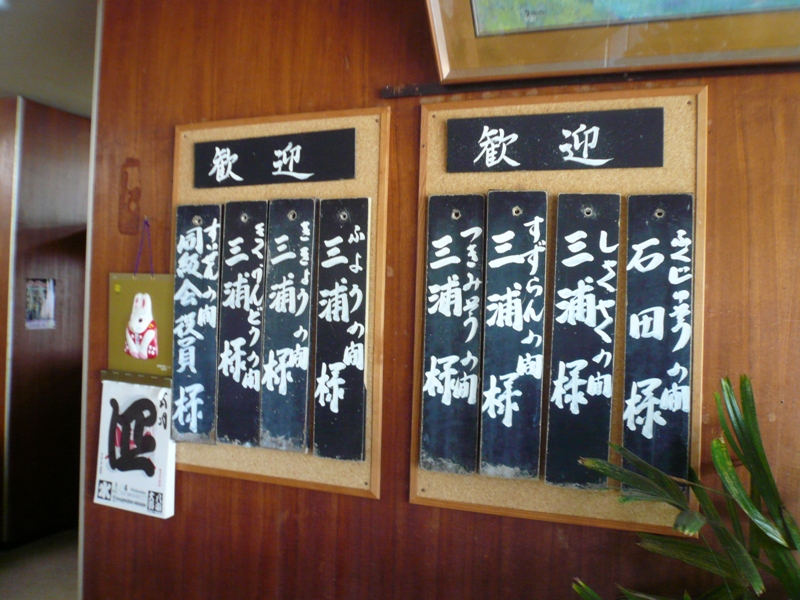 歓迎
ふようの間
三浦様
ききょうの間
三浦様
さくらんどうの間
三浦様
すいせんの間
同級会役員様
歓迎
ふくじゅそうの間
石田様
しゃくやくの間
三浦様
すずらんの間
三浦様
つきみそうの間
三浦様
四
水